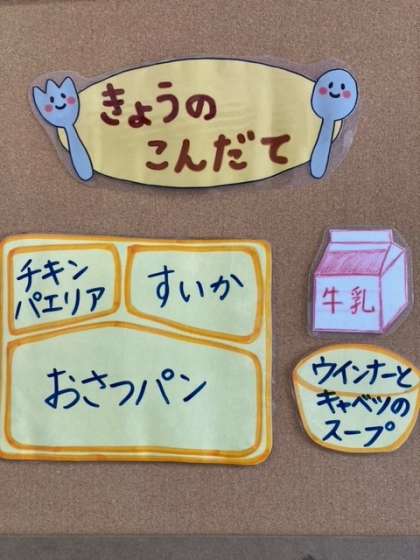 きょうの
こんだて
チキン
パエリア
すいか
おさつパン
牛乳
ウインナーと
キャベツの
スープ